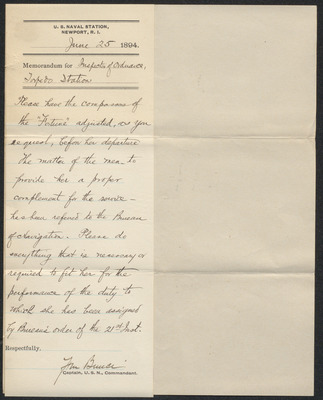 U. S. NAVAL STATION,
NEWPORT, R. I.
June 25 1894.
Memorandum for Inspector of Ordnance,
Torpedo Station
Please have the compasses of
the "Fortune" adjusted, as you
request, before her departure
The matter of the men to
provide her a proper
complement for the service —
has been referred to the Bureau
of Navigation. Please do
everything that is necessary or
required to fit her for the
performance of the duty to
which she has been assigned
by Bureau's order of the 21st Inst.
Respectfully,
Captain, U. S. N., Commandant.